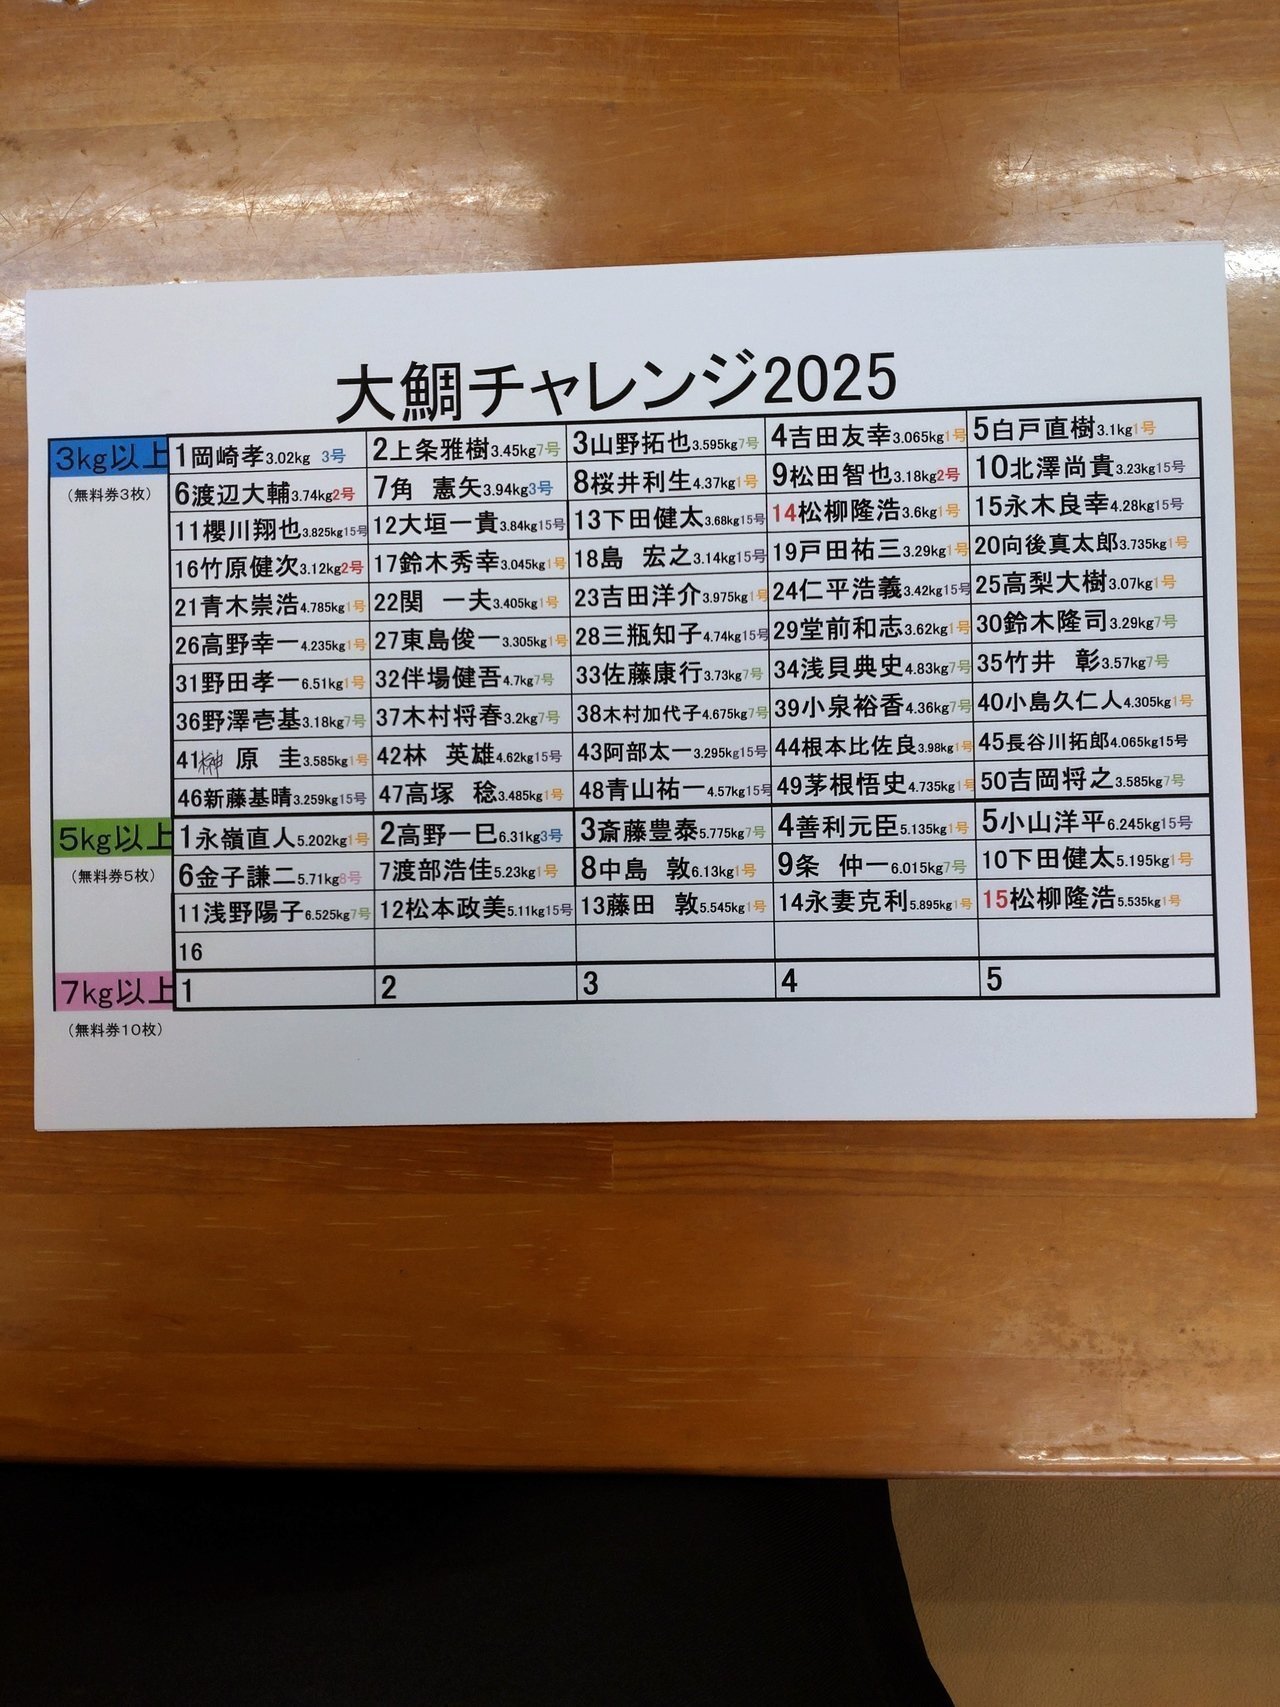 大鯛チャレンジ2025
3kg以上 1岡崎孝3.02kg 3号 2上条雅樹3.45kg7号 3山野拓也3.595kg7号 4吉田友幸3.065kg1号 5白戸直樹3.1kg1号
(無料券3枚) 6渡辺大輔3.74kg2号 7角 憲矢3.94kg3号 8桜井利生4.37kg1号 9松田智也3.18kg2号 10北澤尚貴3.23kg15号
11櫻川翔也3.825kg15号 12大垣一貴3.84kg15号 13下田健太3.68kg15号 14松柳隆浩3.6kg1号 15永木良幸4.28kg15号
16竹原健次3.12kg2号 17鈴木秀幸3.045kg1号 18島 宏之3.14kg15号 19戸田祐三3.29kg1号 20向後真太郎3.735kg1号
21青木崇浩4.785kg1号 22関 一夫3.405kg1号 23吉田洋介3.975kg1号 24仁平浩義3.42kg15号 25高梨大樹3.07kg1号
26高野幸一4.235kg1号 27東島俊一3.305kg1号 28三瓶知子4.74kg15号 29堂前和志3.62kg1号 30鈴木隆司3.29kg7号
31野田孝一6.51kg1号 32伴場健吾4.7kg7号 33佐藤康行3.73kg7号 34浅貝典史4.83kg7号 35竹井 彰3.57kg7号
36野澤壱基3.18kg7号 37木村将春3.2kg7号 38木村加代子4.675kg7号 39小泉裕香4.36kg7号 40小島久仁人4.305kg1号
41榊 原 圭3.585kg1号 42林 英雄4.62kg15号 43阿部太一3.295kg15号 44根本比佐良3.98kg1号 45長谷川拓郎4.065kg15号
46新藤基晴3.259kg15号 47高塚 稔3.485kg1号 48青山祐一4.57kg15号 49茅根悟史4.735kg1号 50吉岡将之3.585kg7号
5kg以上 1永嶺直人5.202kg1号 2高野一巳6.31kg3号 3斎藤豊泰5.775kg7号 4善利元臣5.135kg1号 5小山洋平6.245kg15号
(無料券5枚) 6金子謙二5.71kg8号 7渡部浩佳5.23kg1号 8中島 敦6.13kg1号 9条 仲一6.015kg7号 10下田健太5.195kg1号
11浅野陽子6.525kg7号 12松本政美5.11kg15号 13藤田 敦5.545kg1号 14永妻克利5.895kg1号 15松柳隆浩5.535kg1号
16
7kg以上 1 2 3 4 5
(無料券10枚)